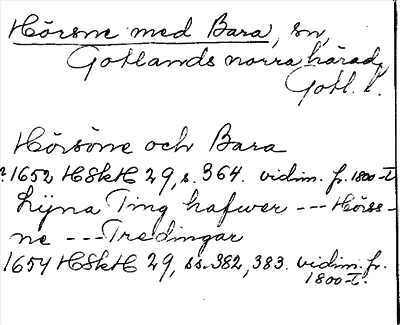 Hörsne med Bara, sn,
Gotlands norra härad,
Gotl. l.
Hörsöne och Bara
?1652 HSkH 29, s. 364. vidim. fr. 1800-t.
Lijna Ting hafwer --- Hörss-
ne --- Tredingar
1654 HSkH 29, ss. 382, 383. vidim. fr.
1800-t.